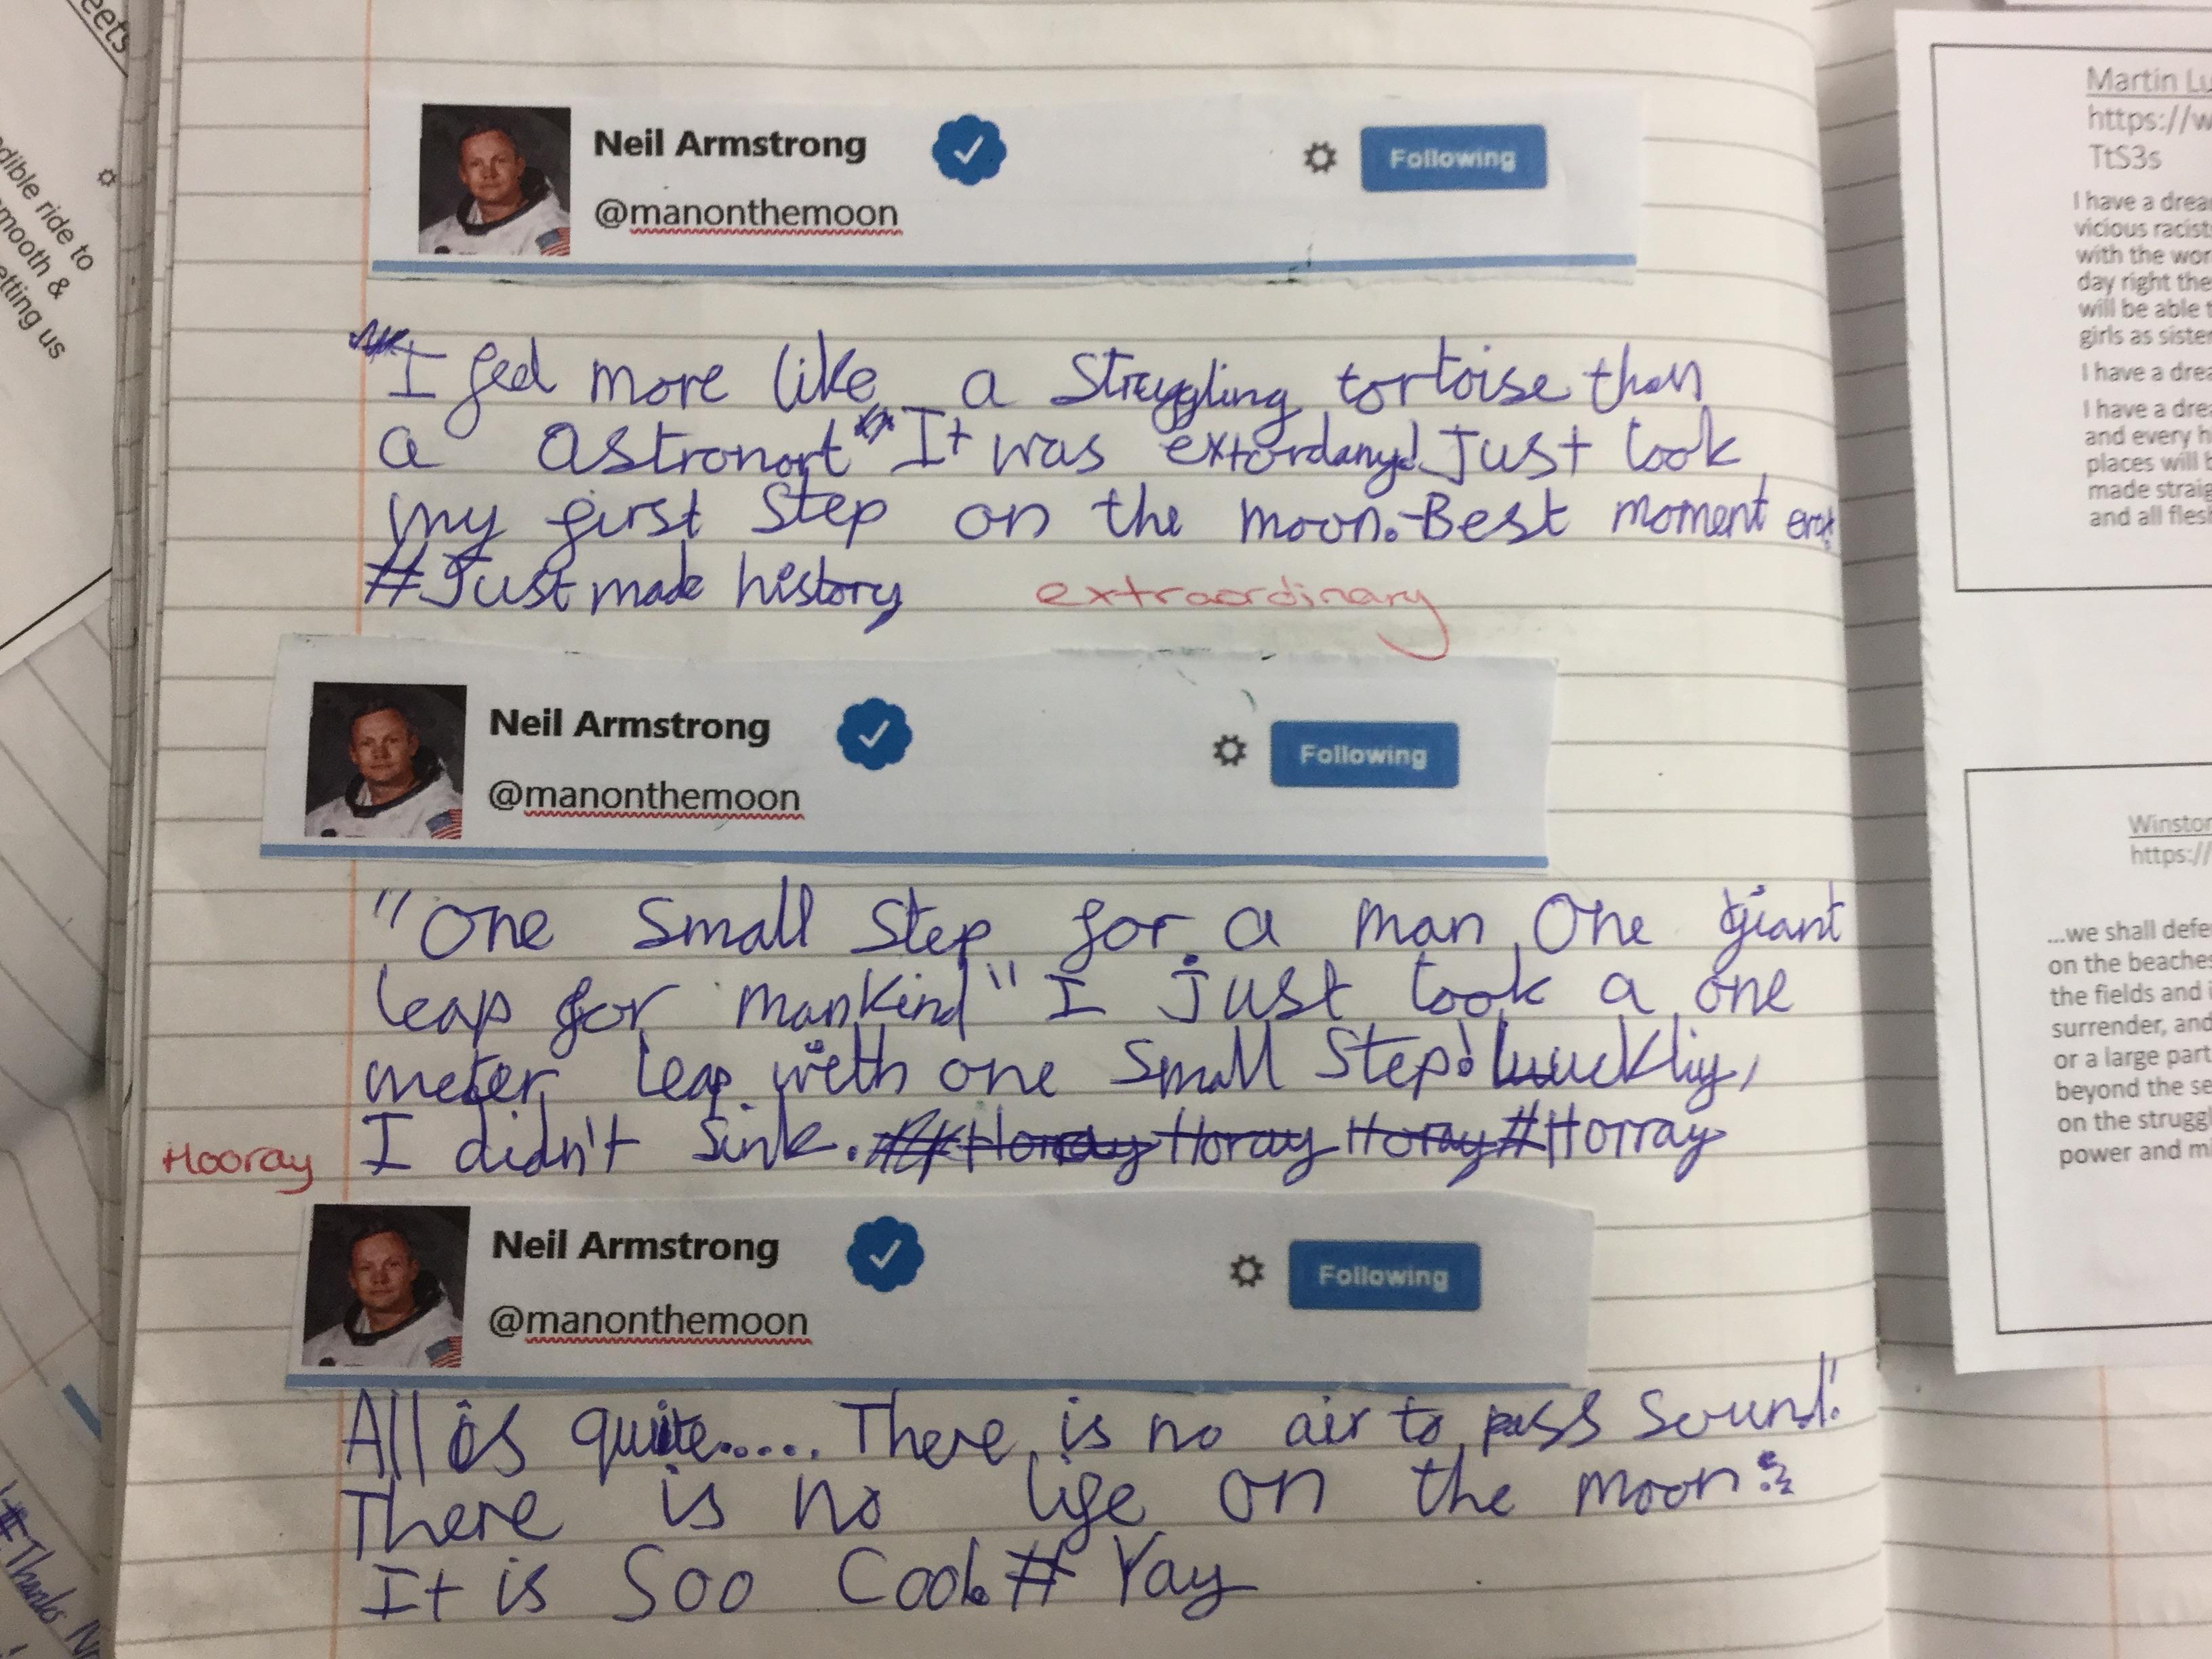 eets
dible ride to
mooth &
etting us
#Thanks
Neil Armstrong
@manonthemoon
Following
I feel more like a Struggling tortoise than
a astronort It was extordany! Just took
my first step on the moon. Best moment
#Just made history
extraordinary
Neil Armstrong
@manonthemoon
Following
"One Small Step for a man, One giant
leap for mankind" I just took a one
meter leap with one small step! luckliy,
I didn't sink. Horay Horay Horay #Horray
Hooray
Neil Armstrong
@manonthemoon
Following
All is quite..... There is no air to pass sound!
There is no life on the moon
It is Soo Cool. # Yay
Martin Lu
https://w
TtS3s
I have a drea
vicious racist
with the wor
day right the
will be able t
girls as sister
I have a drea
I have a drea
and every h
places will b
made straig
and all fles
Winston
https://
...we shall defe
on the beaches
the fields and i
surrender, and
or a large part
beyond the se
on the struggl
power and mi